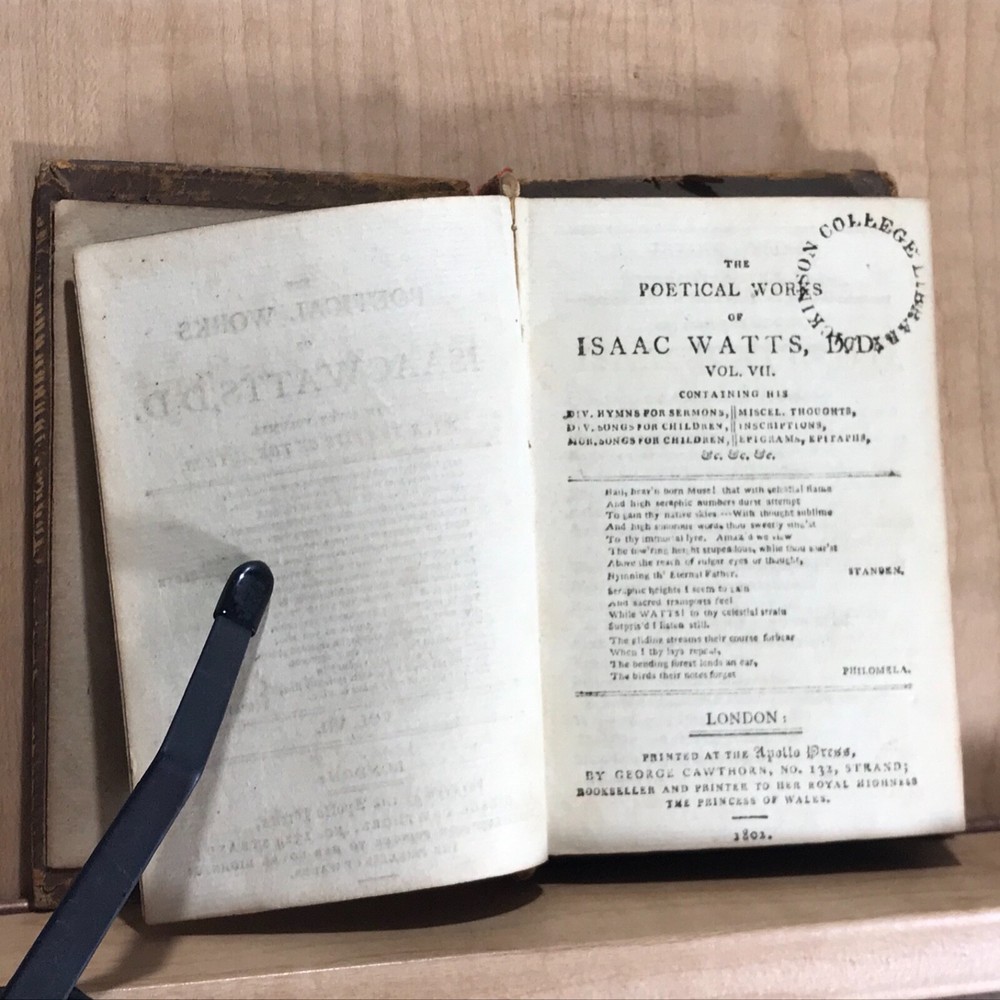 THE
POETICAL WORKS
OF
ISAAC WATTS, D.D.
VOL. VII.
CONTAINING HIS
DIV. HYMNS FOR SERMONS, || MISCEL. THOUGHTS,
DIV. SONGS FOR CHILDREN, || INSCRIPTIONS,
MOR. SONGS FOR CHILDREN, || EPIGRAMS, EPITAPHS,
&c. &c. &c.
Hail, heav'n born Muse! that with celestial flame
And high seraphic numbers durst attempt
To gain thy native skies---With thought sublime
And high sonorous words thou sweetly sing'st
To thy immortal lyre. Amaz'd we view
The tow'ring height stupendous, while thou soar'st
Above the reach of vulgar eyes or thought,
Hymning th' Eternal Father. STANDEN.
Seraphic heights I seem to gain
And sacred transports feel
While WATTS! to thy celestial strain
Surpris'd I listen still.
The gliding streams their course forbear
When I thy lays repeat,
The bending forest lends an ear,
The birds their notes forget PHILOMELA.
LONDON:
PRINTED AT THE Apollo Press,
BY GEORGE CAWTHORN, NO. 132, STRAND;
BOOKSELLER AND PRINTER TO HER ROYAL HIGHNESS
THE PRINCESS OF WALES.
1802.
DICKINSON COLLEGE LIBRARY